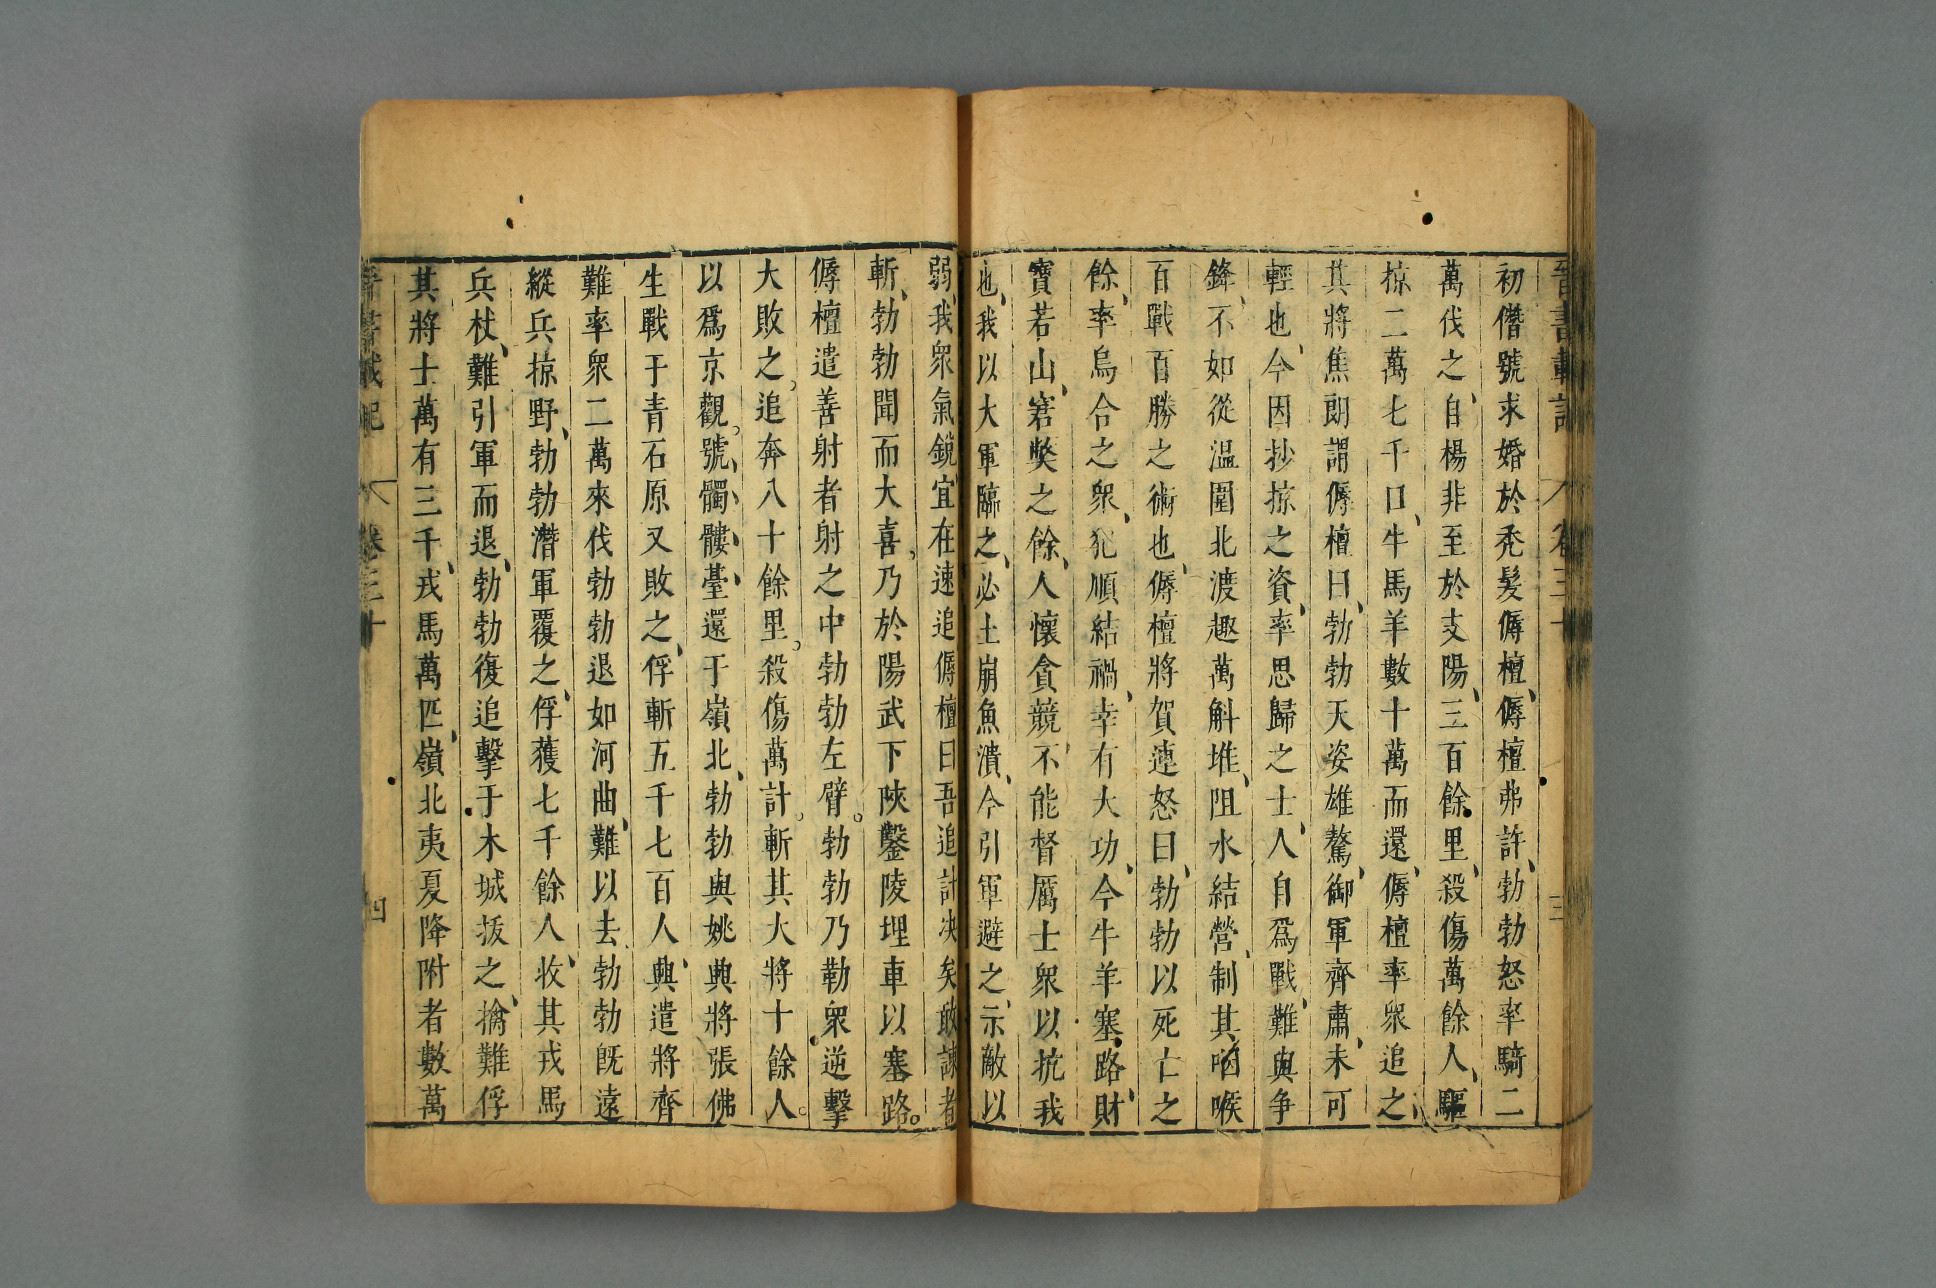 晉書載記 卷三十 三
初僭號求婚於禿髮傉檀、傉檀弗許、勃勃怒率騎二
萬伐之、自楊非至於支陽、三百餘里、殺傷萬餘人、驅
掠二萬七千口、牛馬羊數十萬而還、傉檀率衆追之、
其將焦朗謂傉檀曰、勃勃天姿雄驁、御軍齊肅、未可
輕也、今因抄掠之資、率思歸之士、人自爲戰、難與争
鋒、不如從溫圍北渡趣萬斛堆、阻水結營、制其咽喉
百戰百勝之術也、傉檀將賀連怒曰、勃勃以死亡之
餘、率烏合之衆、犯順結禍、幸有大功、今牛羊塞路、財
寶若山、窘獘之餘、人懷貪競、不能督厲士衆以抗我
也、我以大軍臨之、必土崩魚潰、今引軍避之、示敵以
弱、我衆氣銳、宜在速追傉檀曰吾追計决矣敢諫者
斬、勃勃聞而大喜、乃於陽武下陝鑿陵埋車以塞路。
傉檀遣善射者射之中勃勃左臂。勃勃乃勒衆逆擊
大敗之。追奔八十餘里。殺傷萬計。斬其大將十餘人。
以爲京觀。號、髑、髏、臺、還于嶺北、勃勃與姚興將張佛
生戰于青石原又敗之、俘斬五千七百人、興遣將齊
難率衆二萬來伐勃勃退如河曲、難以去勃勃旣遠
縱兵掠野、勃勃潛軍覆之、俘獲七千餘人、收其戎馬
兵杖、難引軍而退、勃勃復追擊于木城拔之、擒難俘
其將士萬有三千、戎馬萬匹、嶺北夷夏降附者數萬
晉書載記 卷三十 四